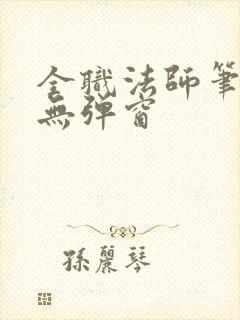 全職法師筆
無彈窗
孫麗琴